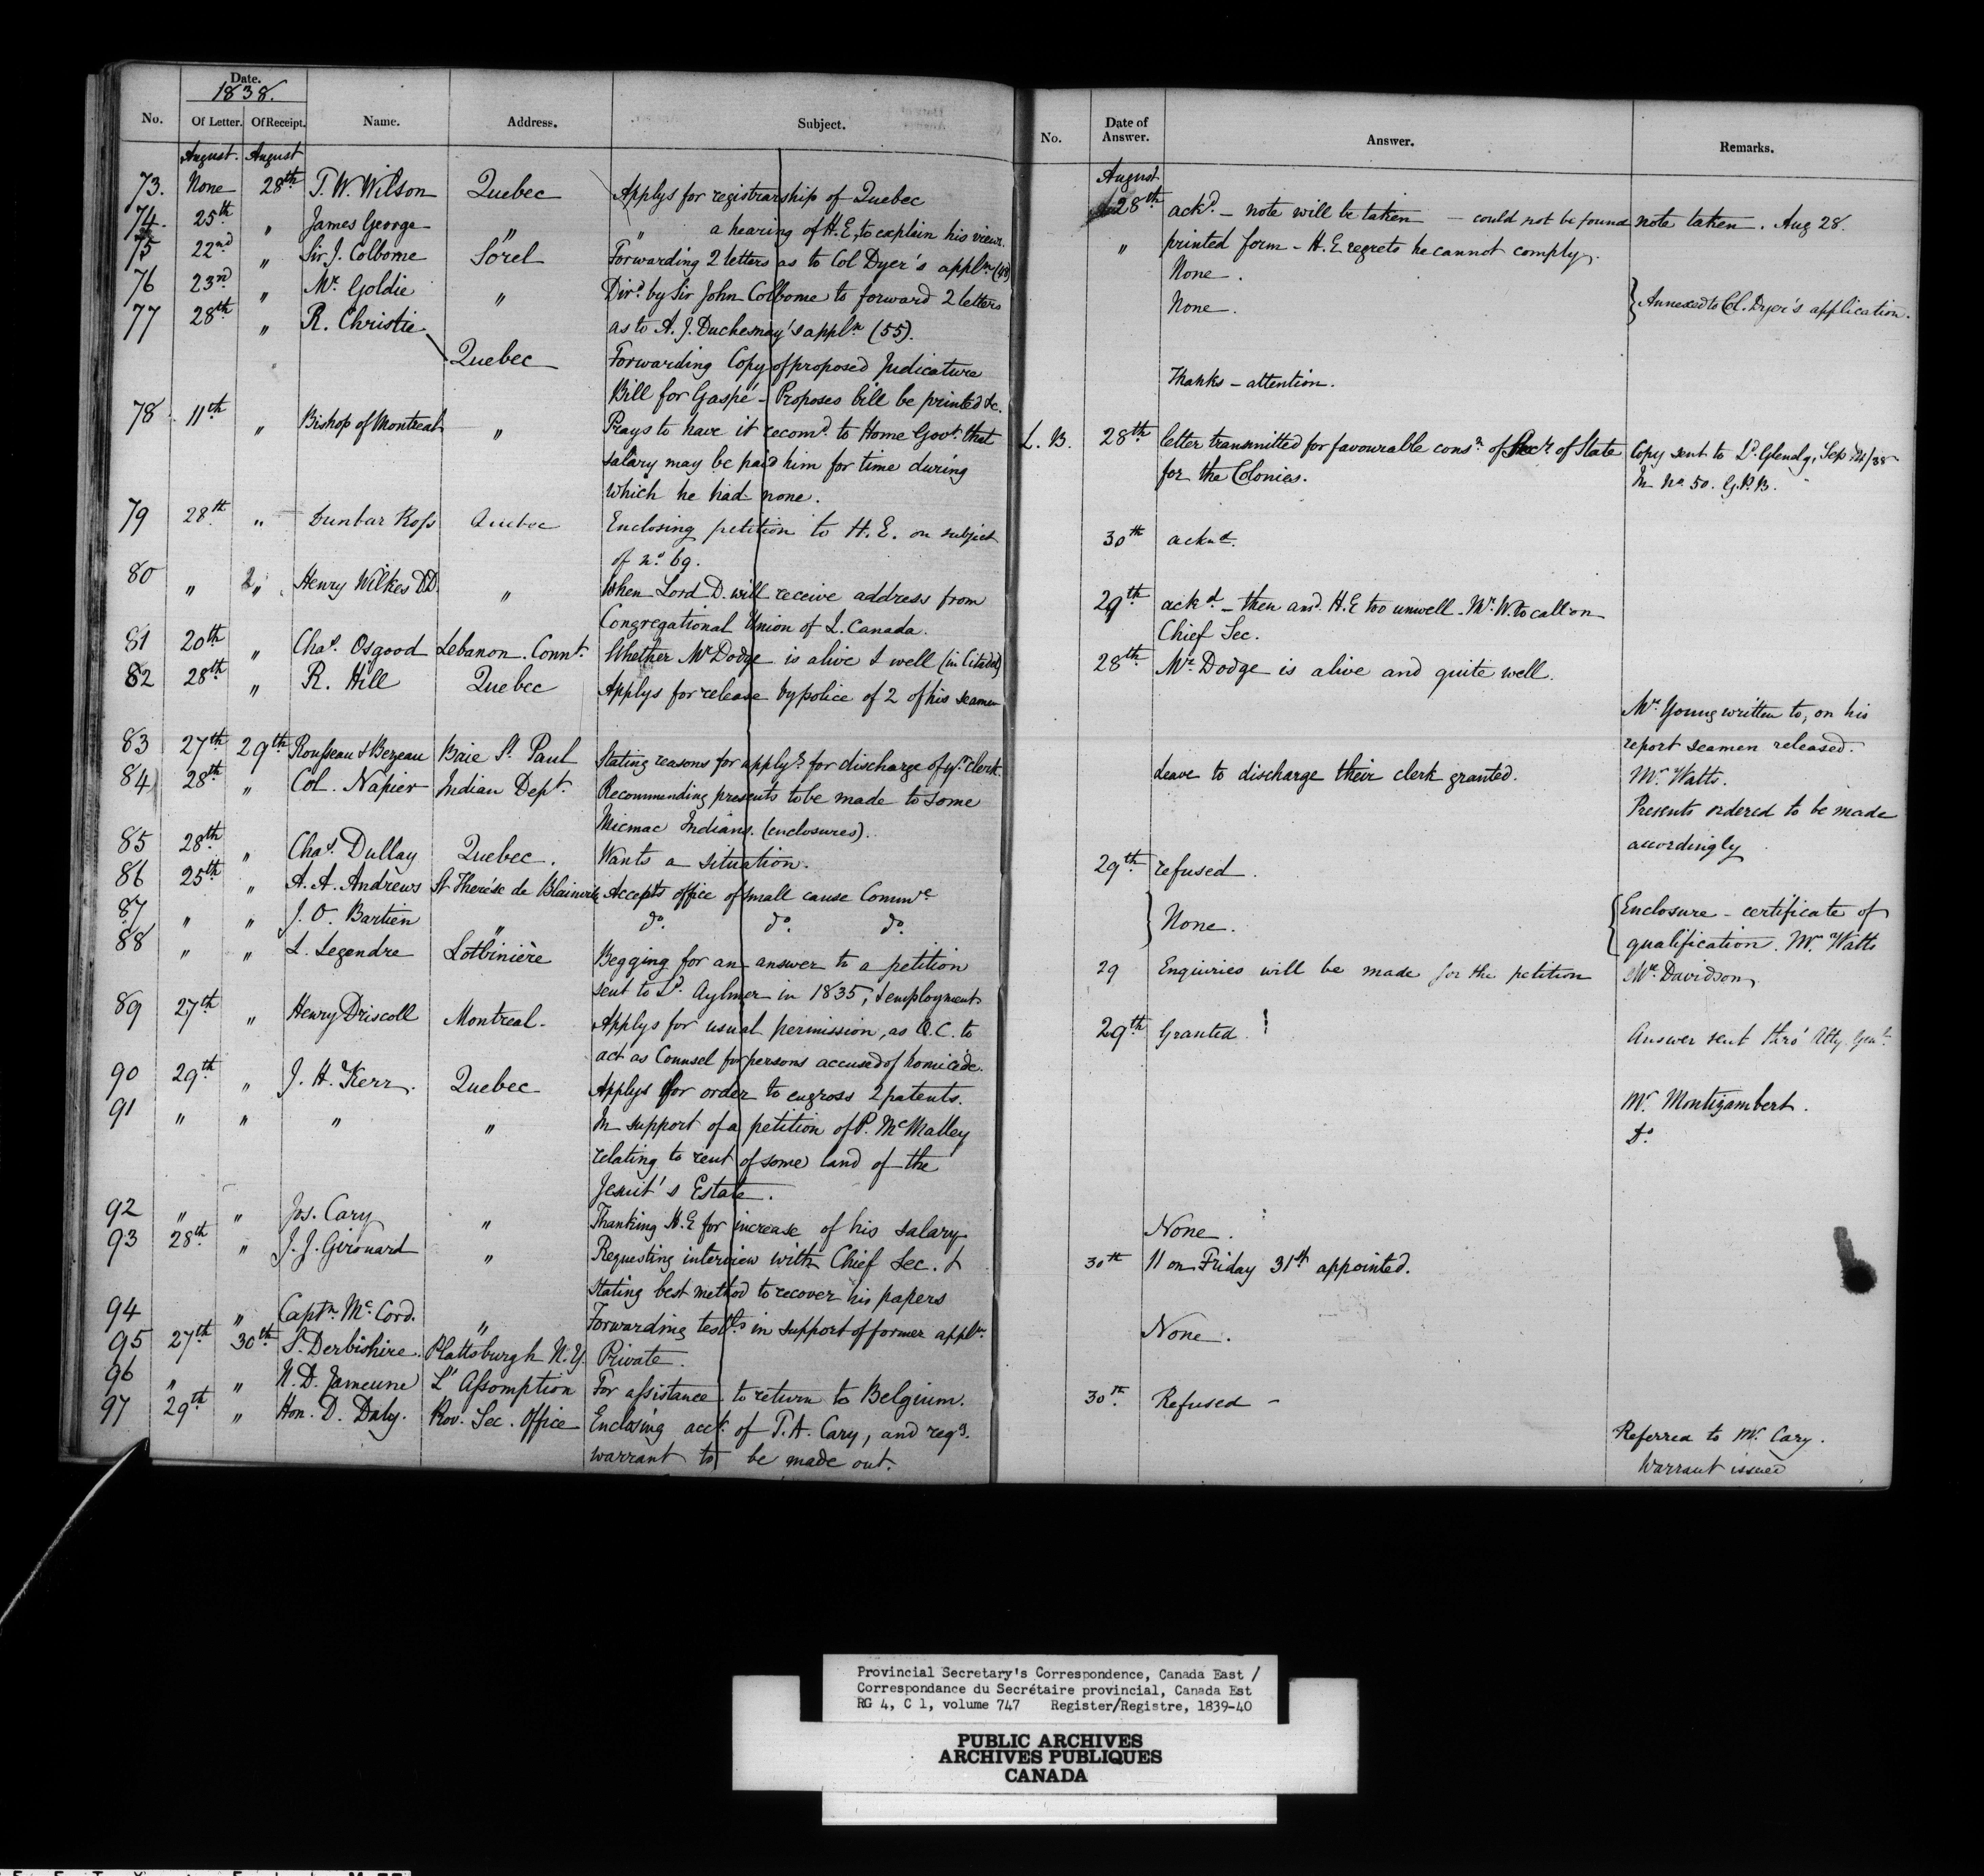 Date.
1838.
No. Of Letter. Of Receipt. Name. Address. Subject.
August. August
73. None 28th T. W. Wilson Quebec Applys for registrarship of Quebec
74. 25th " James George " " a hearing of H.E. to explain his views.
75 22nd " Sir J. Colborne Sorel Forwarding 2 letters as to Col Dyer's appln (48)
76 23rd " Mr. Goldie " Dird. by Sir John Colborne to forward 2 letters
as to A. J. Duchesnay's appln (55).
77 28th " R. Christie Quebec Forwarding Copy of proposed Judicature
Bill for Gaspé - Proposes bill be printed &c.
78. 11th " Bishop of Montreal " Prays to have it recomd. to Home Govt. that
salary may be paid him for time during
which he had none.
79 28th " Dunbar Ross Quebec Enclosing petition to H. E. on subject
of no. 69.
80 " 2 " Henry Wilkes D.D. " When Lord D. will receive address from
Congregational Union of L. Canada.
81 20th " Chas. Osgood Lebanon. Connt. Whether Mr Dodge is alive & well (in Citadel)
82 28th " R. Hill Quebec Applys for release by police of 2 of his seamen
83 27th 29th Rousseau & Bezeau Baie St. Paul Stating reasons for applyg. for discharge of yr. clerk.
84 28th " Col. Napier Indian Dept. Recommending presents to be made to some
Micmac Indians. (enclosures).
85 28th " Chas. Dullay Quebec. Wants a situation.
86 25th " A. A. Andrews St Therése de Blainville Accepts office of small cause Commre
87 " " J. O. Bartien " do. do. do.
88 " " L. Legendre Lotbinière Begging for an answer to a petition
sent to Ld. Aylmer in 1835, & employment
89 27th " Henry Driscoll Montreal. Applys for usual permission, as Q.C. to
act as Counsel for persons accused of homicide.
90 29th " J. H. Kerr. Quebec Applys for order to engross 2 patents.
91 " " " " In support of a petition of P. McMalley
relating to rent of some land of the
Jesuit's Estate.
92 " " Jos. Cary " Thanking H.E for increase of his salary
93 28th " J. J. Girouard " Requesting interview with Chief Sec. &
stating best method to recover his papers
94 " Captn. McCord. " Forwarding testls in support of former appln.
95 27th 30th S. Derbishire. Plattsburgh N.Y. Private.
96 " " N. D. Jameune L'Assomption For assistance to return to Belgium.
97 29th " Hon. D. Daly. Prov. Sec. Office Enclosing acct. of T. A. Cary, and reqg.
warrant to be made out.
No. Date of Answer. Answer. Remarks.
August
28th ackd. - note will be taken - could not be found note taken. Aug 28.
" printed form - H. E regrets he cannot comply.
None.
None. } Annexed to Col. Dyer's application.
Thanks - attention.
L. B. 28th letter transmitted for favourable consn. of Secr. of State Copy sent to Ld. Glenelg, Sep 14/38
for the Colonies. In No. 50. G.P.B.
30th acknd.
29th ackd. - then ansd. H.E too unwell. Mr. W. to call on
Chief Sec.
28th Mr. Dodge is alive and quite well.
Mr. Young written to, on his
report seamen released.
Leave to discharge their clerk granted. Mr. Watts.
Presents ordered to be made
accordingly
29th refused.
} None. { Enclosure - certificate of
qualification. Mr. Watts
29 Enquiries will be made for the petition Mr. Davidson
29th Granted. Answer sent thro' Atty. Genl.
Mr. Montizambert.
Do
None.
30th 11 on Friday 31st appointed.
None.
30th. Refused -
Referred to Mr. Cary.
Warrant issued
Provincial Secretary's Correspondence, Canada East /
Correspondance du Secrétaire provincial, Canada Est
RG 4, C 1, volume 747 Register/Registre, 1839-40
PUBLIC ARCHIVES
ARCHIVES PUBLIQUES
CANADA